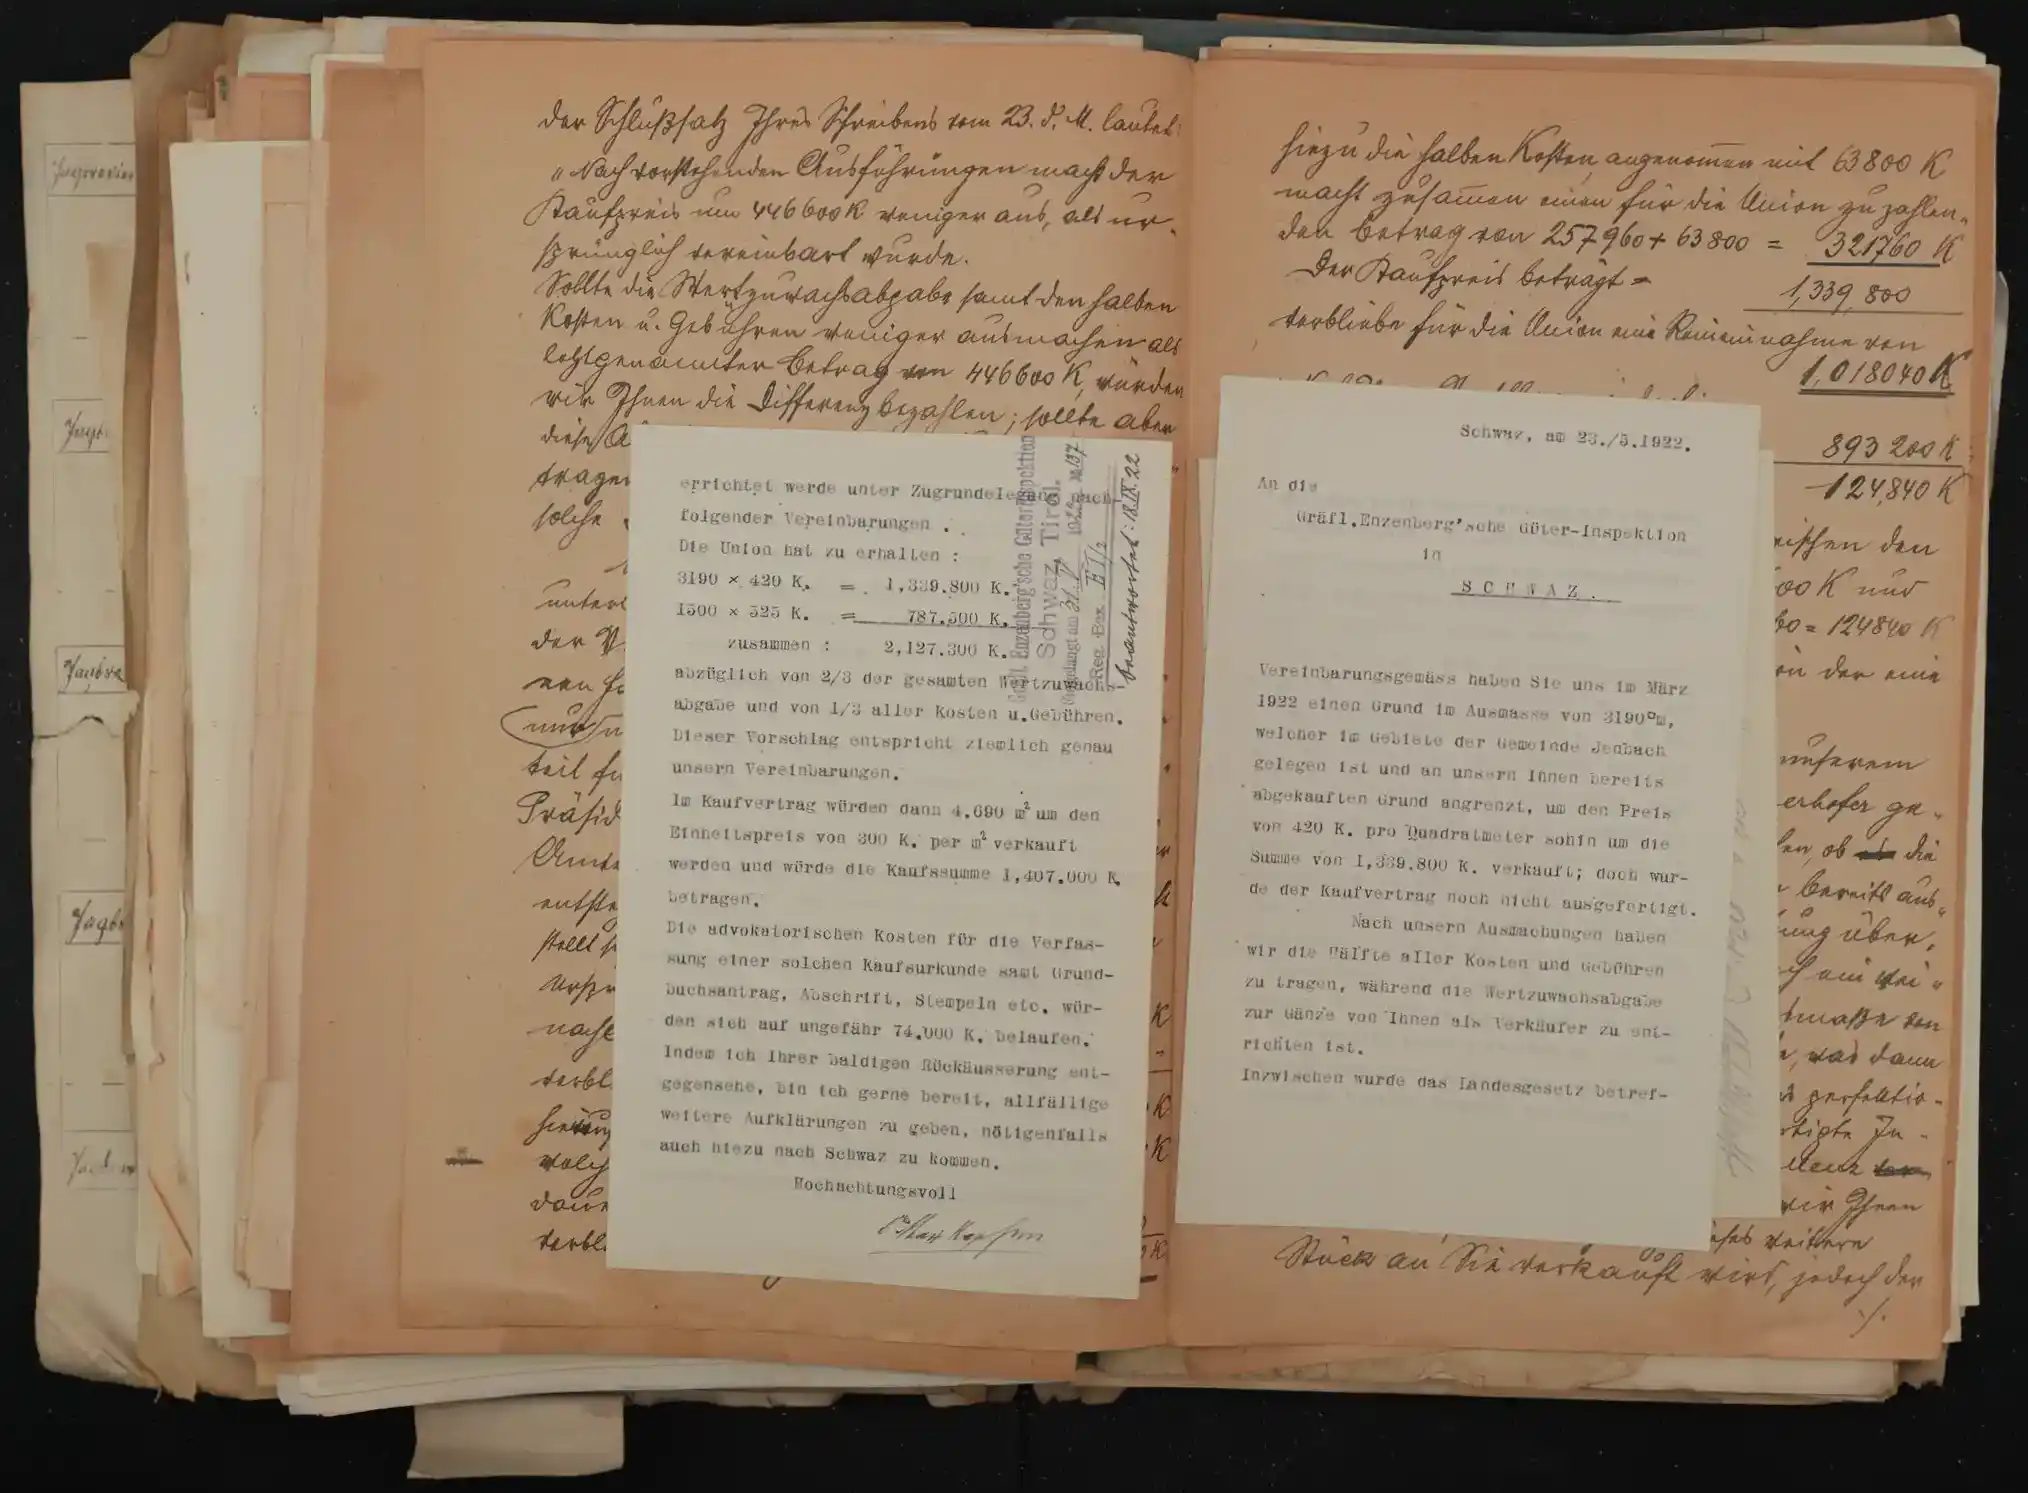 der Schlußsatz Ihres Schreibens vom 23. d. M. lautet:
"Nach vorstehenden Ausführungen macht der
Kaufpreis um 446600 K weniger aus, als ur-
sprünglich vereinbart wurde.
Sollte die Wertzuwachsabgabe samt den halben
Kosten u. Gebühren weniger ausmachen als
letztgenannter Betrag von 446600 K, würden
wir Ihnen die Differenz bezahlen; sollte aber
diese
tragen
solche
der
von
nur
teil
Präsid
entste
stellt
nach
verbl
welch
verbl
errichtet werde unter Zugrundelegung nach
folgender Vereinbarungen .
Die Union hat zu erhalten :
3190 × 420 K. = 1,339.800 K.
1500 × 525 K. = 787.500 K.
zusammen : 2,127.300 K.
abzüglich von 2/3 der gesamten Wertzuwachs-
abgabe und von 1/3 aller Kosten u.Gebühren.
Dieser Vorschlag entspricht ziemlich genau
unsern Vereinbarungen.
Im Kaufvertrag würden dann 4.690 m² um den
Einheitspreis von 300 K. per m² verkauft
werden und würde die Kaufssumme 1,407.000 K.
betragen.
Die advokatorischen Kosten für die Verfas-
sung einer solchen Kaufsurkunde samt Grund-
buchsantrag, Abschrift, Stempeln etc. wür-
den sich auf ungefähr 74.000 K. belaufen.
Indem ich Ihrer baldigen Rückäusserung ent-
gegensehe, bin ich gerne bereit, allfällige
weitere Aufklärungen zu geben, nötigenfalls
auch hiezu nach Schwaz zu kommen.
Hochachtungsvoll
Gräfl. Enzenberg'sche Güterinspektion
Schwaz, Tirol.
Eingelangt am 31. V 1922 No 137
Reg. Box E I/2
beantwortet: 18.IX.22
hiezu die halben Kosten, angenommen mit 63800 K
macht zusammen einen für die Union zu zahlen-
den Betrag von 257960 + 63800 = 321760 K
Der Kaufpreis beträgt = 1,339,800
verbliebe für die Union eine Reineinnahme von
1,018040 K
893 200 K
124,840 K
Schwaz, am 23./5.1922.
An die
Gräfl.Enzenberg'sche Güter-Inspektion
in
SCHWAZ.
Vereinbarungsgemäss haben Sie uns im März
1922 einen Grund im Ausmasse von 3190□m,
welcher im Gebiete der Gemeinde Jenbach
gelegen ist und an unsern Ihnen bereits
abgekauften Grund angrenzt, um den Preis
von 420 K. pro Quadratmeter sohin um die
Summe von 1,339.800 K. verkauft; doch wur-
de der Kaufvertrag noch nicht ausgefertigt.
Nach unsern Ausmachungen haben
wir die Hälfte aller Kosten und Gebühren
zu tragen, während die Wertzuwachsabgabe
zur Gänze von Ihnen als Verkäufer zu ent-
richten ist.
Inzwischen wurde das Landesgesetz betref-
ischen den
00 K nur
60 = 124840 K
in der eine
unserem
erhofer ge-
ob die
bereits aus-
ung über,
ein wei-
maße von
was dann
perfektio-
tigte In-
wir Ihnen
dieses weitere
Stück an Sie verkauft wird, jedoch der
./.